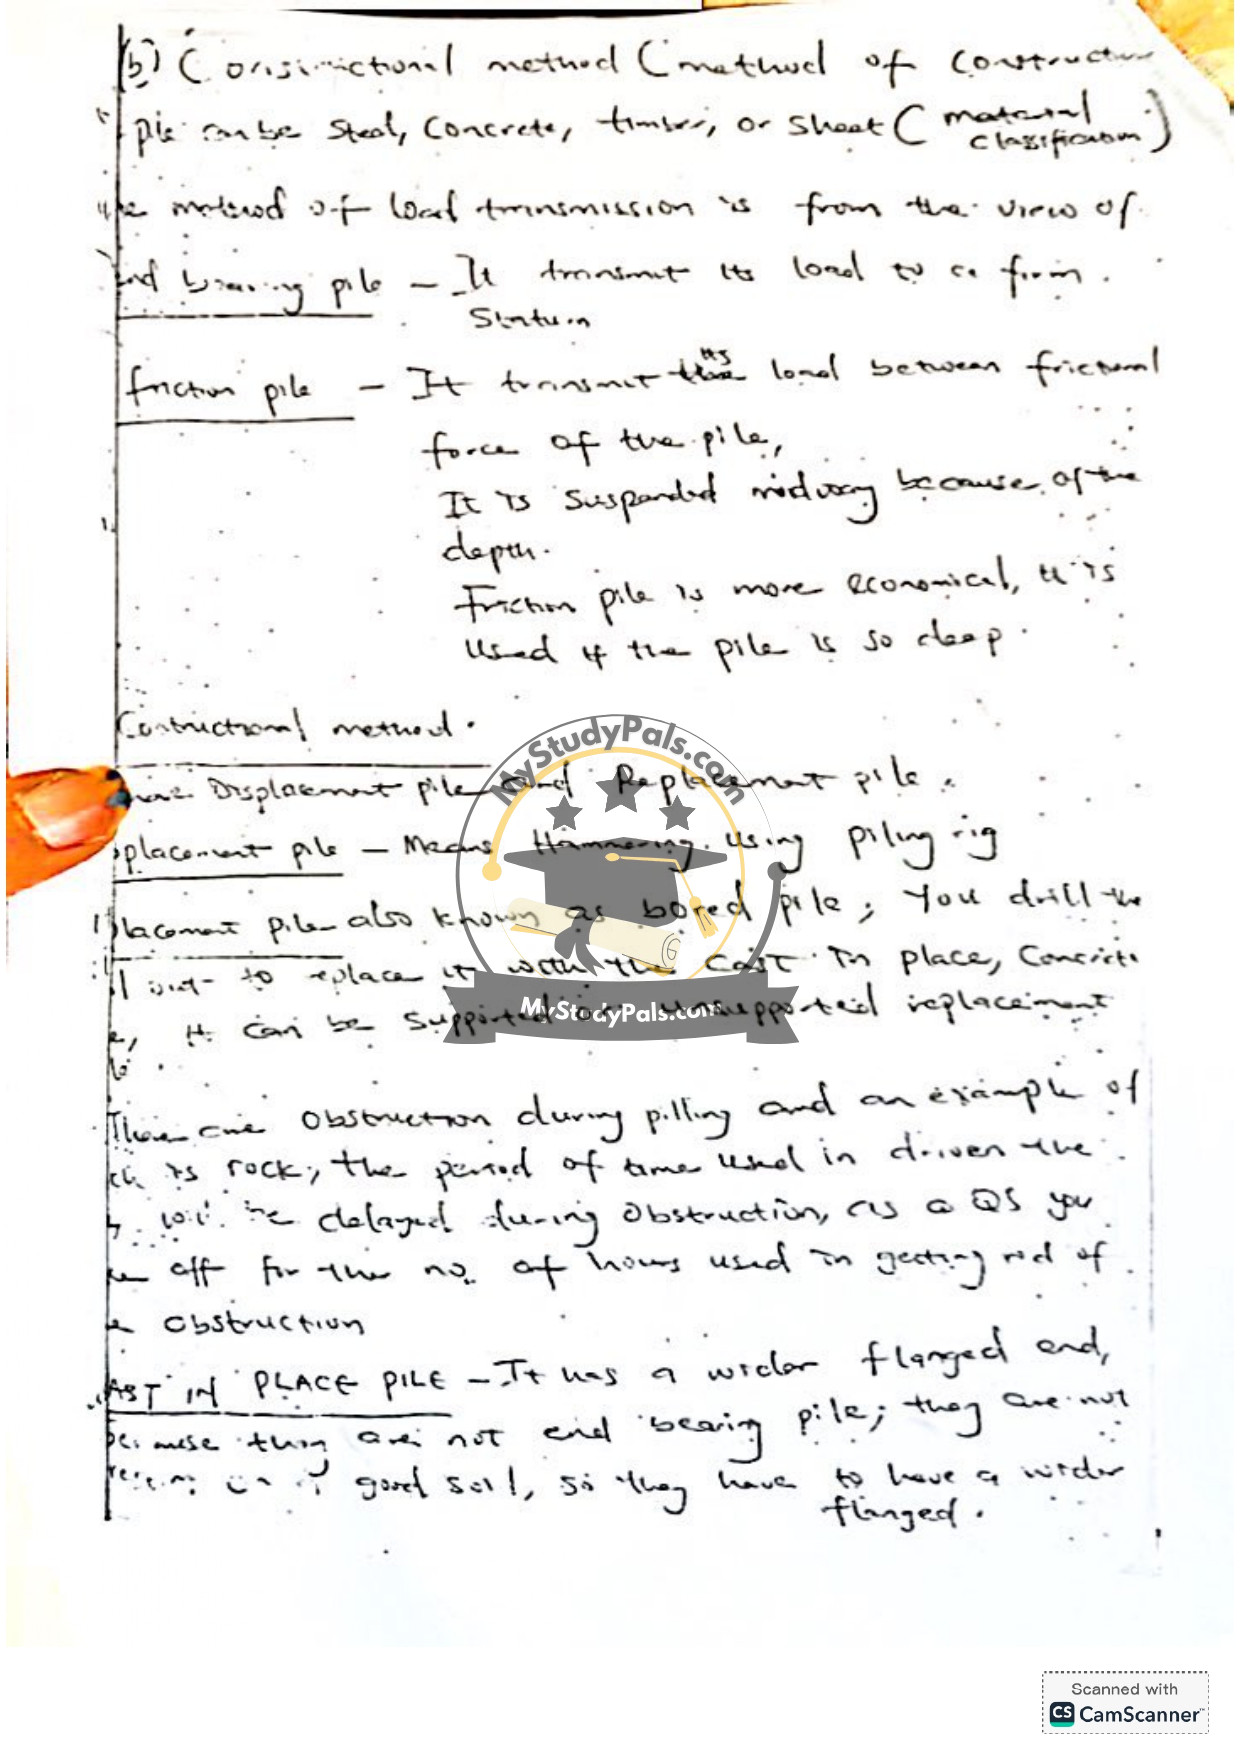 (b) Constructional method (method of construction
pile can be steel, concrete, timber, or sheet ( material
classification )
method of load transmission is from the view of
bearing pile - It transmit its load to a firm.
Stratum
friction pile - It transmit its load between frictional
force of the pile,
It is suspended midway because of the
depth.
Friction pile is more economical, it is
Used if the pile is so deep.
Contructional method.
Displacement pile and Replacement pile.
placement pile - Means Hammering. Using piling rig
lacement pile also known as bored pile; You drill the
out to replace it with the cast in place, Concrete
it can be supported or unsupported replacement
There are obstruction during pilling and an example of
is rock, the period of time used in driven the
be delayed during obstruction, as a QS you
off for the no. of hours used in getting rid of
obstruction
AST IN PLACE PILE - It has a wider flanged end,
because they are not end bearing pile; they are not
good soil, so they have to have a wider
flanged.
MyStudyPals.com
MyStudyPals.com
Scanned with
CS CamScanner